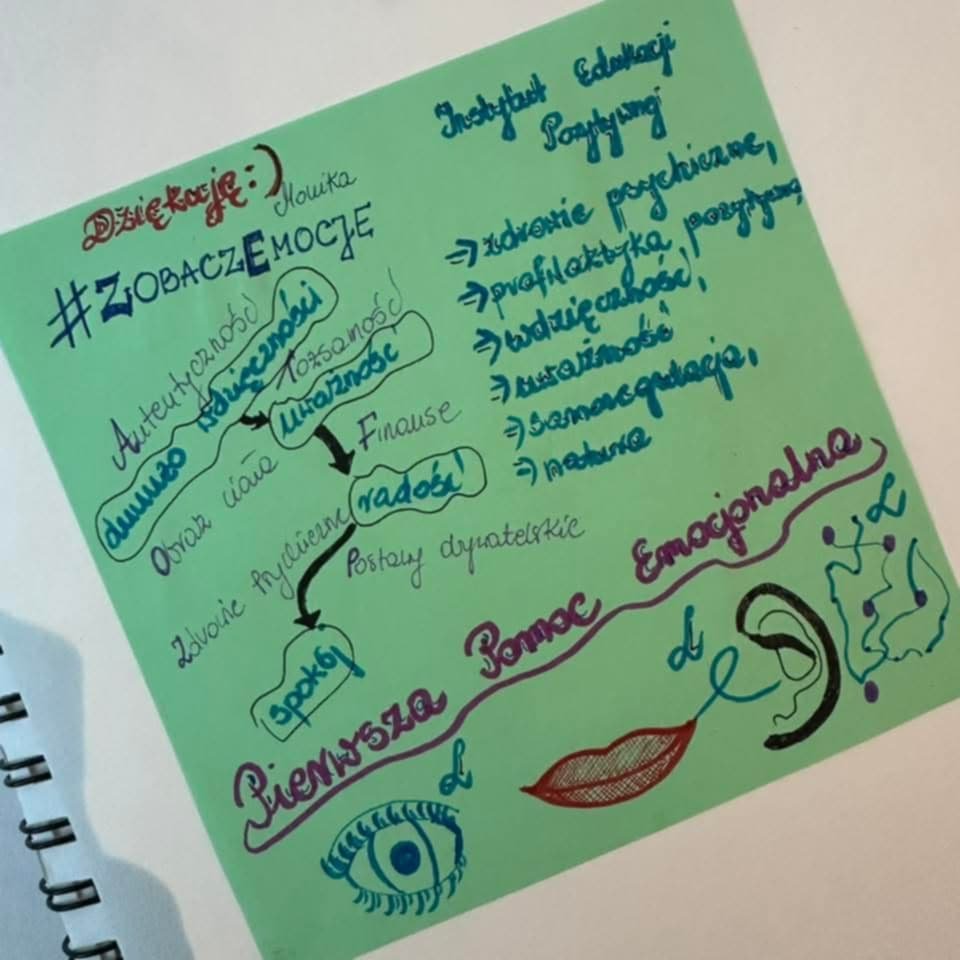 Instytut Edukacji
Pozytywnej
Dziękuję :)
Monika
#ZOBACZEMOCJE
⇒ zdrowie psychiczne,
⇒ profilaktyka pozytywna,
⇒ wdzięczność,
⇒ uważność
⇒ samoregulacja,
⇒ natura
Autentyczność
wdzięczności
Tożsamość
uważność
Finanse
Obraz ciała
radość
Zdrowie Psychiczne
Postawy obywatelskie
spokój
Pierwsza Pomoc Emocjonalna
L
L
L